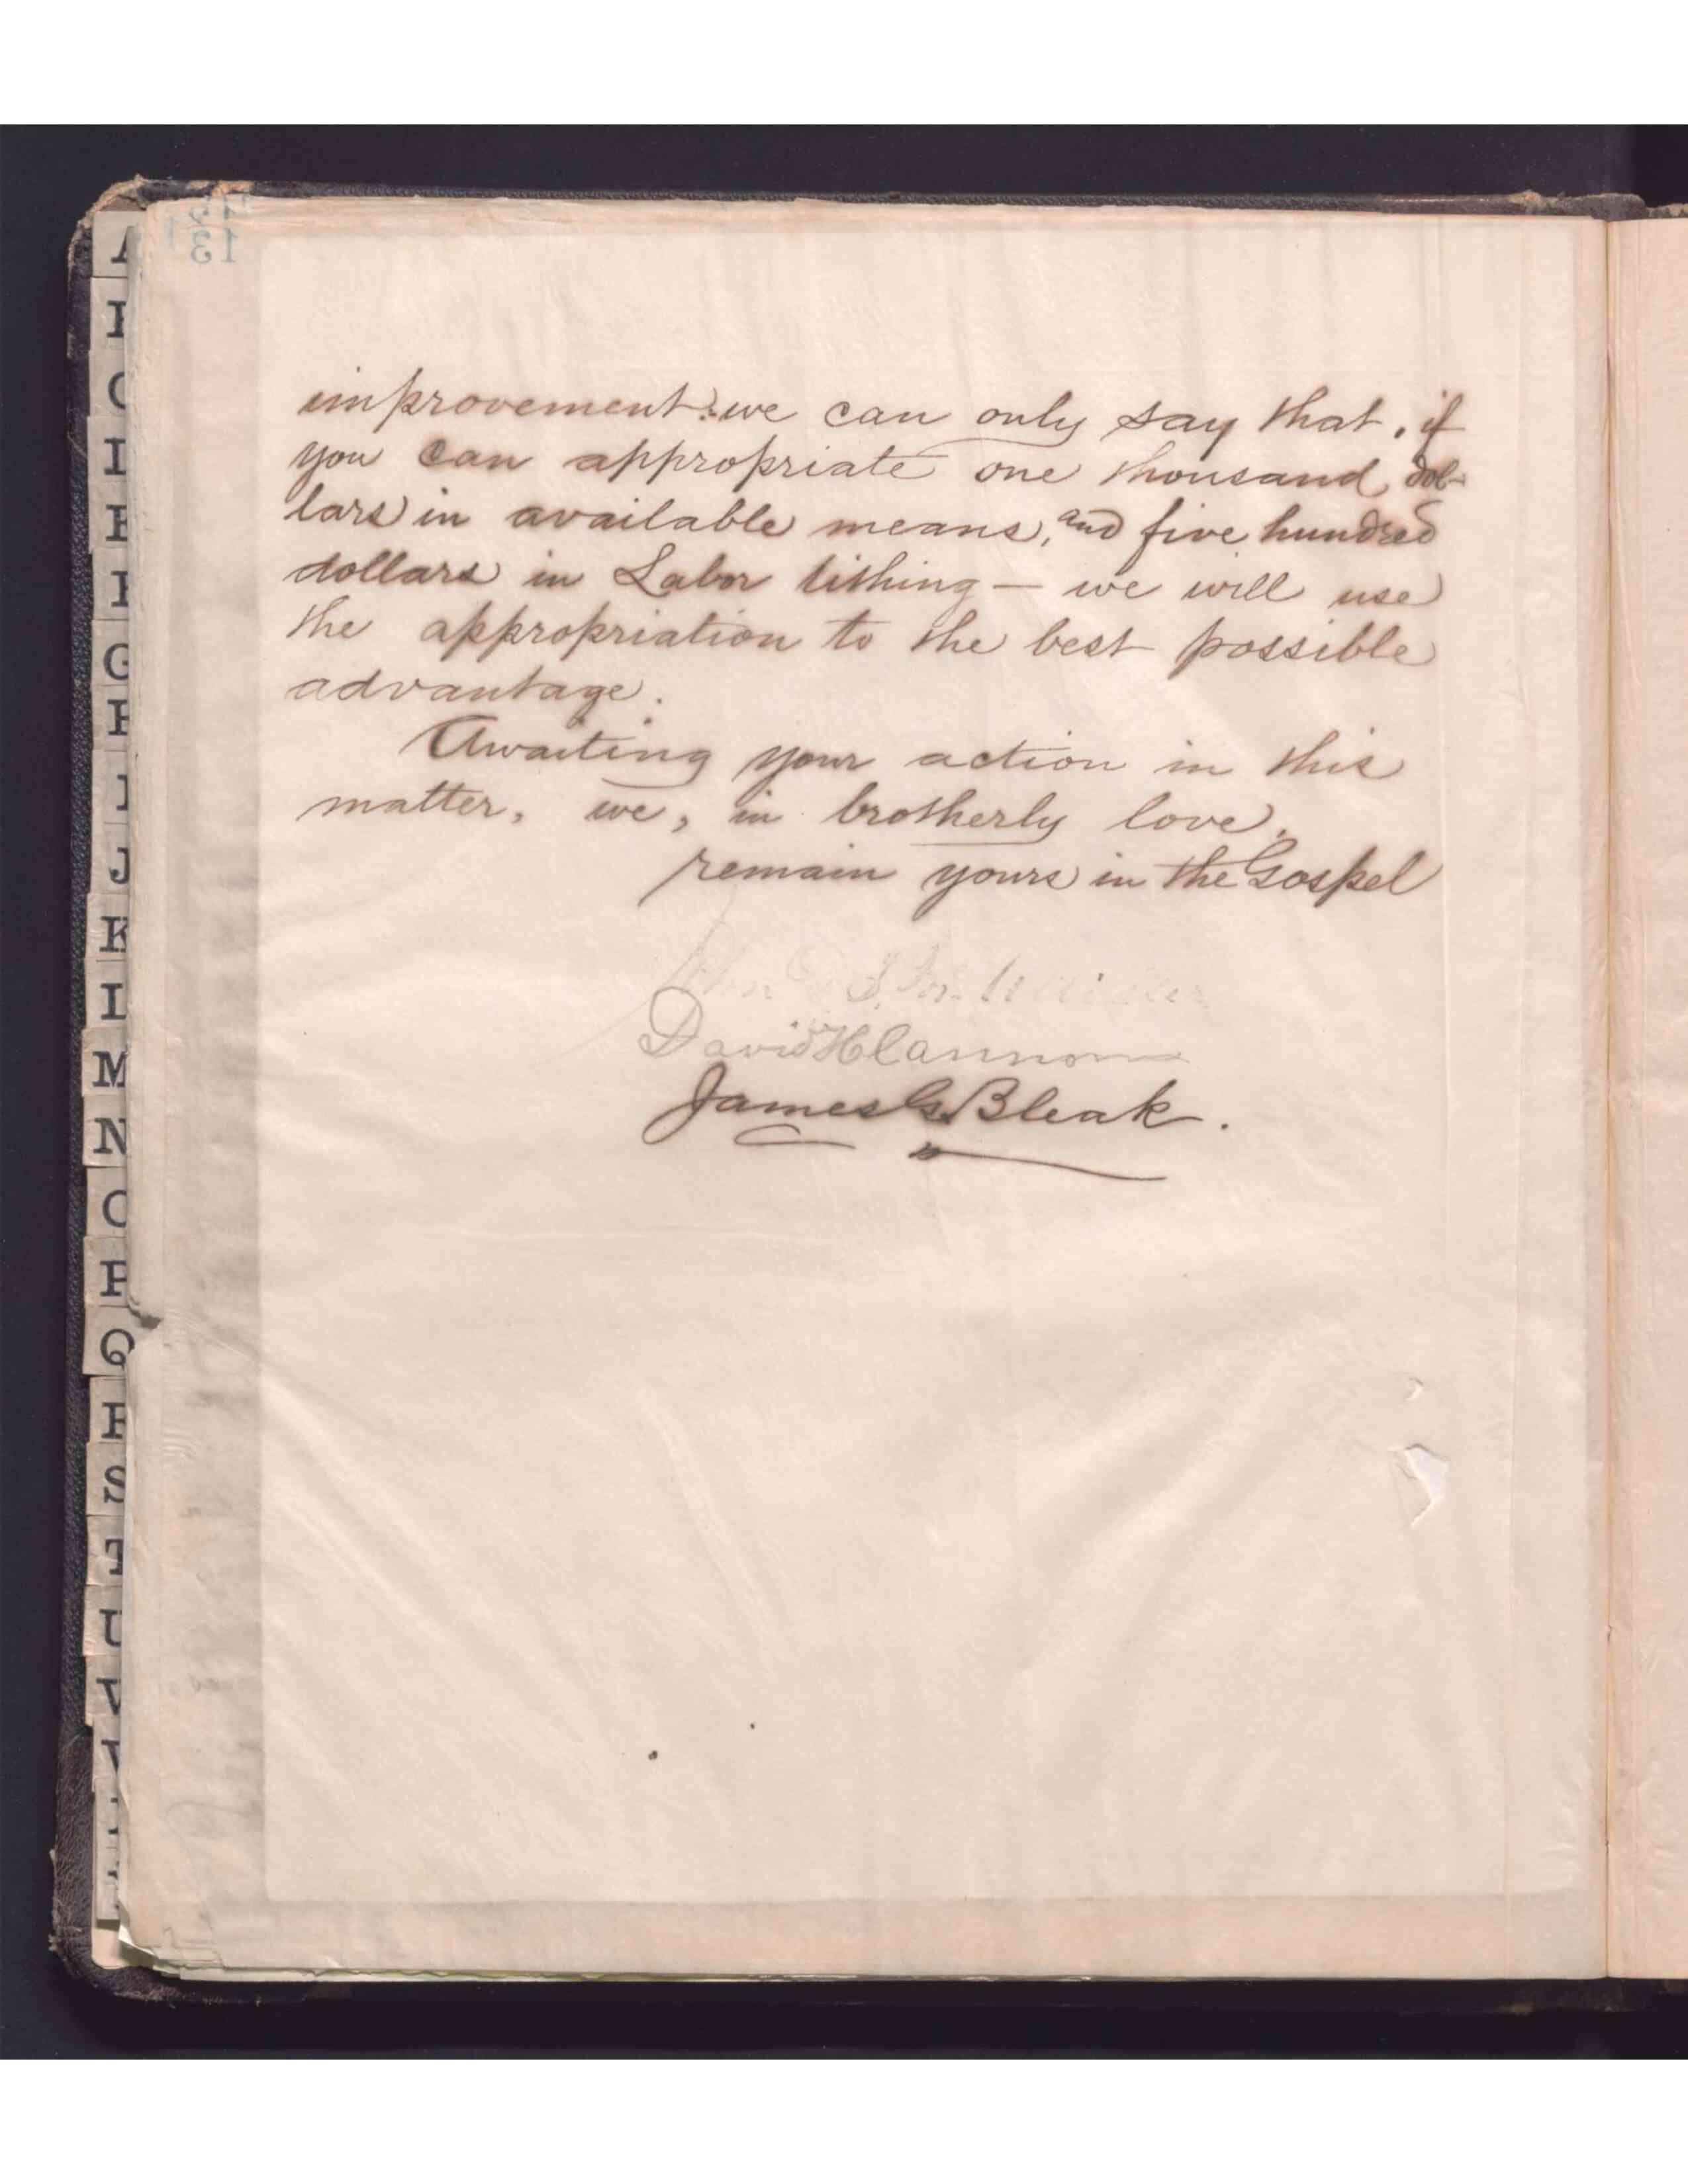 improvement: we can only say that, if
you can appropriate one thousand dol-
lars in available means, and five hundred
dollars in Labor tithing — we will use
the appropriation to the best possible
advantage.
Awaiting your action in this
matter, we, in brotherly love,
remain yours in the Gospel
David H Cannon
James G. Bleak.
13
A
C
G
J
K
M
N
O
P
Q
S
T
U
V